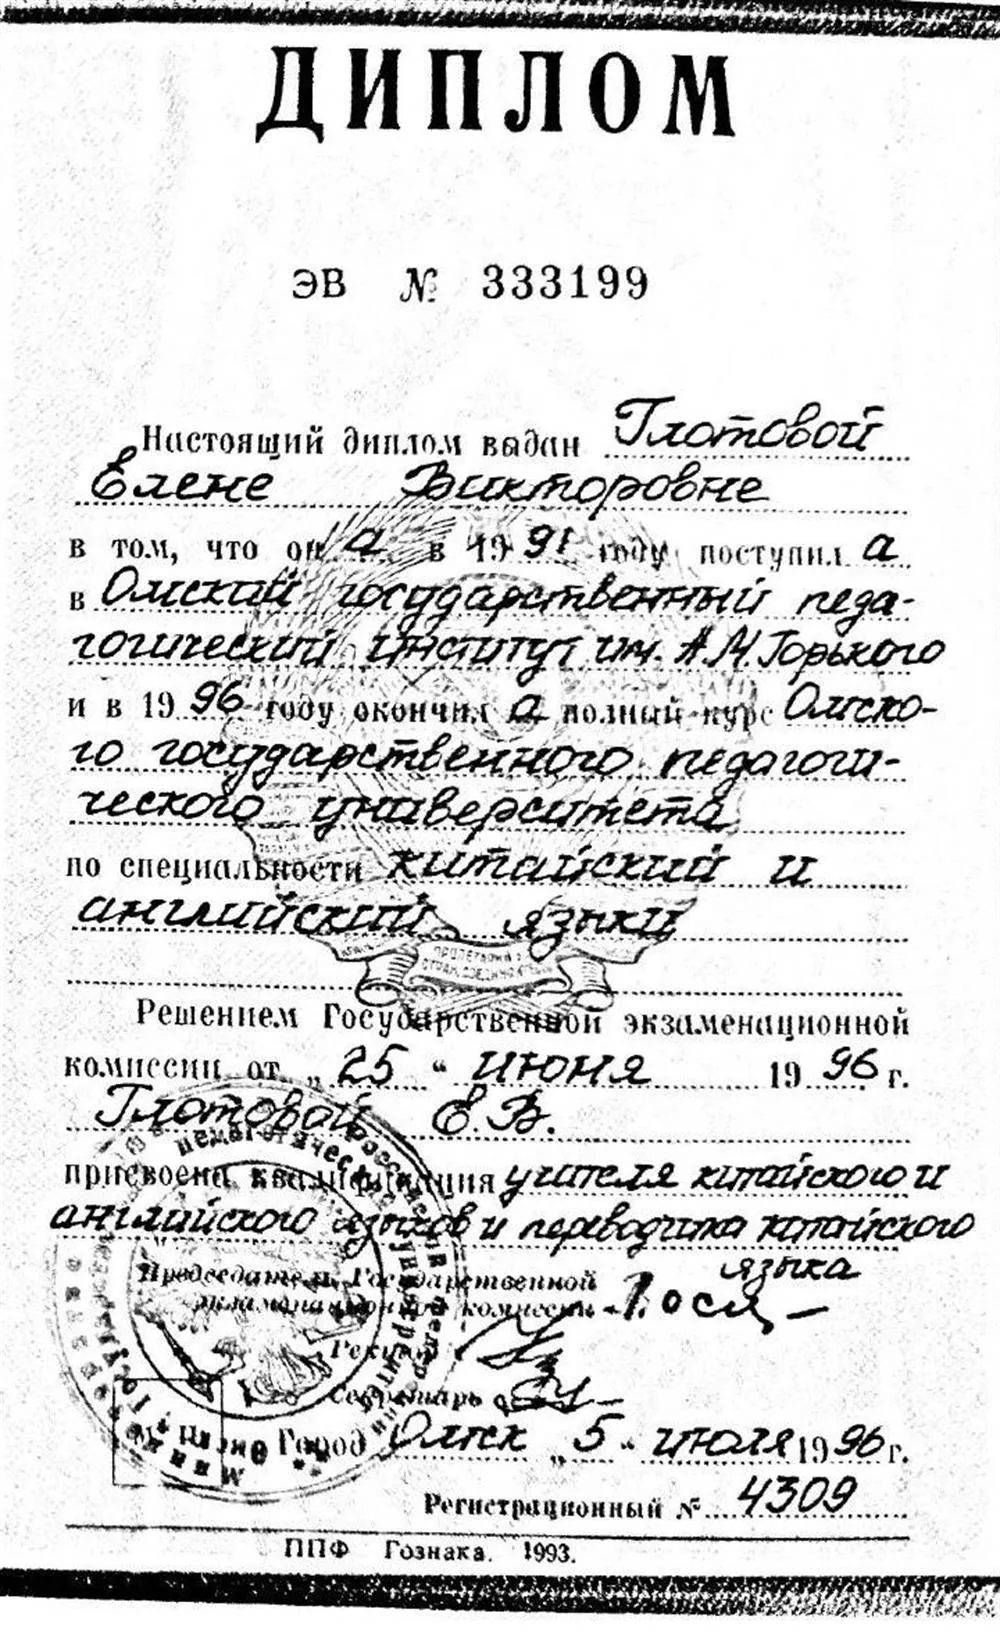 ДИПЛОМ
ЭВ № 333199
Настоящий диплом выдан Глотовой
Елене Викторовне
в том, что она в 1991 году поступила
в Омский государственный педа-
гогический институт им. А.М.Горького
и в 1996 году окончила полный курс Омско-
го государственного педагоги-
ческого университета
по специальности китайский и
английский языки
Решением Государственной экзаменационной
комиссии от „25“ июня 1996 г.
Глотовой Е.В.
присвоена квалификация учителя китайского и
английского языков и переводчика китайского
языка
Председатель Государственной
экзаменационной комиссии
Ректор
Секретарь
Город Омск „5“ июля 1996 г.
Регистрационный № 4309
ППФ Гознака. 1993.